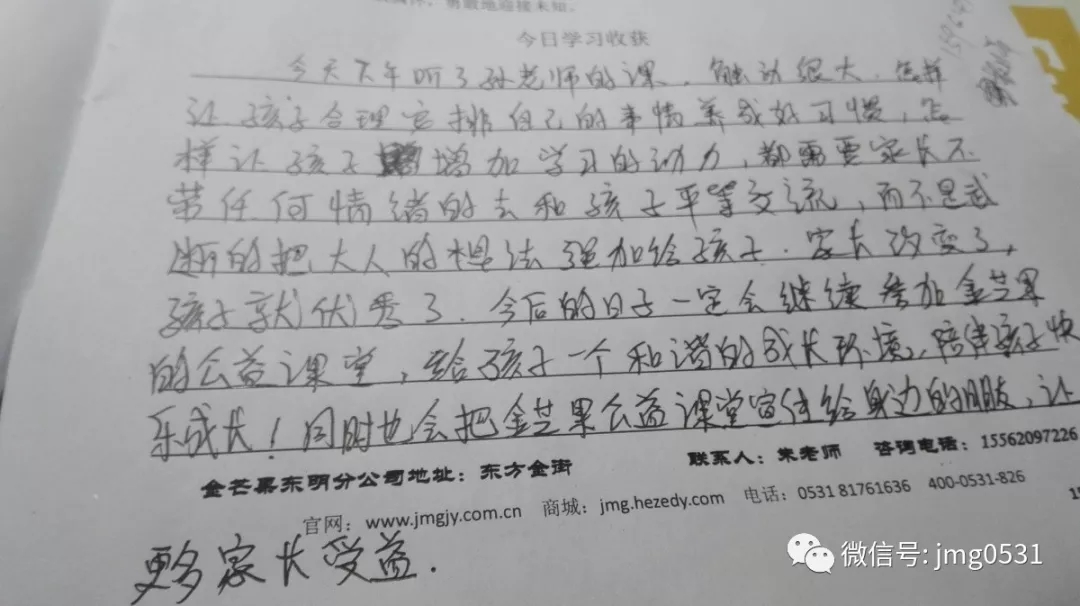 勇敢地迎接未知。
今日学习收获
今天下午听了孙老师的课，触动很大，怎样
让孩子合理安排自己的事情养成好习惯，怎
样让孩子增加学习的动力，都需要家长不
带任何情绪的去和孩子平等交流，而不是武
断的把大人的想法强加给孩子．家长改变了，
孩子就优秀了．今后的日子一定会继续参加金芒果
的公益课堂，给孩子一个和谐的成长环境，陪伴孩子快
乐成长！同时也会把金芒果公益课堂宣传给身边的朋友，让
金芒果东明分公司地址：东方金街 联系人：朱老师 咨询电话：15562097226
官网：www.jmgjy.com.cn 商城：jmg.hezedy.com 电话：0531 81761636 400-0531-826
更多家长受益．
微信号: jmg0531